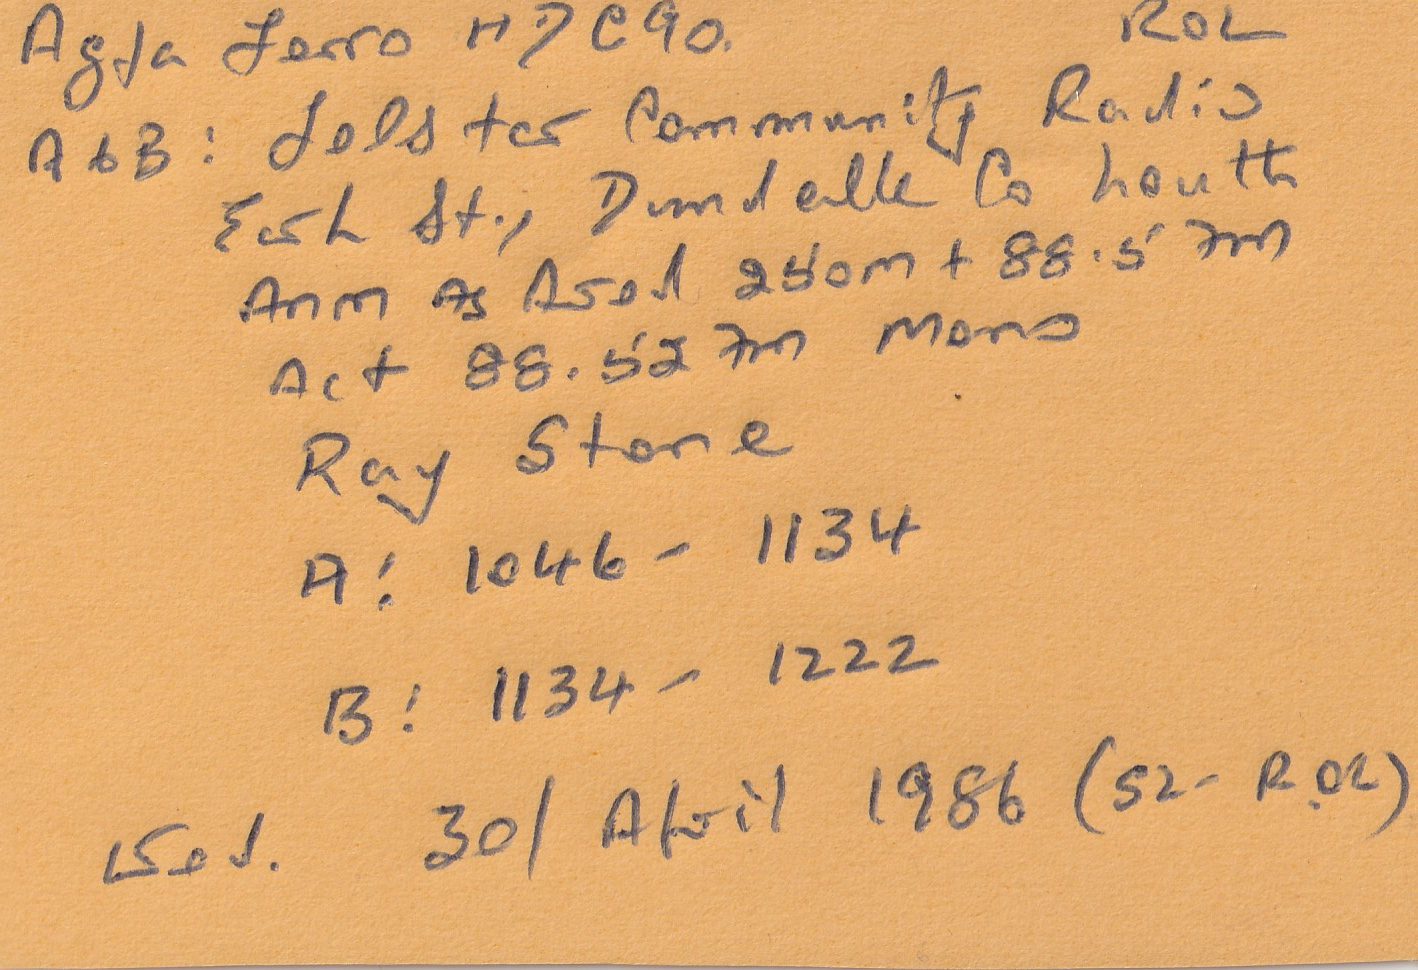 Agfa Ferro HD C90. ROL
A+B: Lelster Community Radio
Earl St., Dundalk Co Louth
Ann as Brod 250m + 88.5 FM
Act 88.52 FM Mono
Ray Stone
A: 1046 - 1134
B: 1134 - 1222
Wed. 30/April 1986 (S2- R.OL)